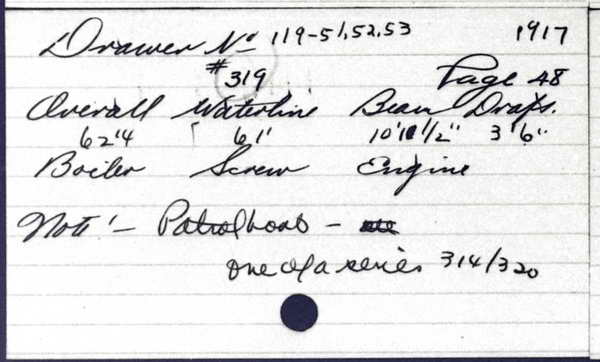 Drawer No 119-51,52,53 1917
#319 Page 48
Overall Waterline Beam Draft.
62'4 61" 10'11 1/2" 3'6"
Boiler Screw Engine
Note!- Patrol boat -
one of a series 314/320